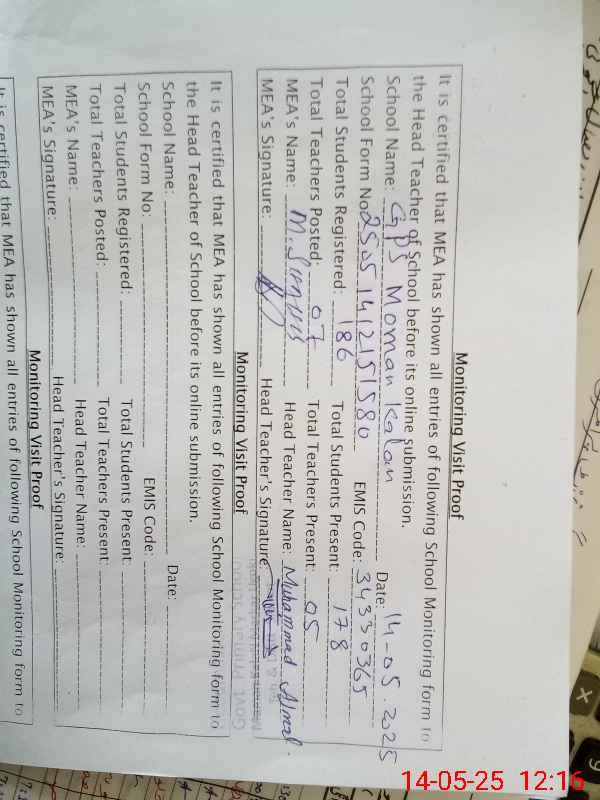 Monitoring Visit Proof
It is certified that MEA has shown all entries of following School Monitoring form to
the Head Teacher of School before its online submission.
School Name: GPS Moman Kalan Date: 14-05.2025
School Form No: 25051412151580 EMIS Code: 34330365
Total Students Registered: 186 Total Students Present: 178
Total Teachers Posted: 07 Total Teachers Present: 05
MEA's Name: M. Head Teacher Name: Muhammad
MEA's Signature: Head Teacher's Signature:
Monitoring Visit Proof
It is certified that MEA has shown all entries of following School Monitoring form to
the Head Teacher of School before its online submission.
School Name: Date:
School Form No: EMIS Code:
Total Students Registered: Total Students Present:
Total Teachers Posted: Total Teachers Present:
MEA's Name: Head Teacher Name:
MEA's Signature: Head Teacher's Signature:
Monitoring Visit Proof
It is certified that MEA has shown all entries of following School Monitoring form to
14-05-25 12:16